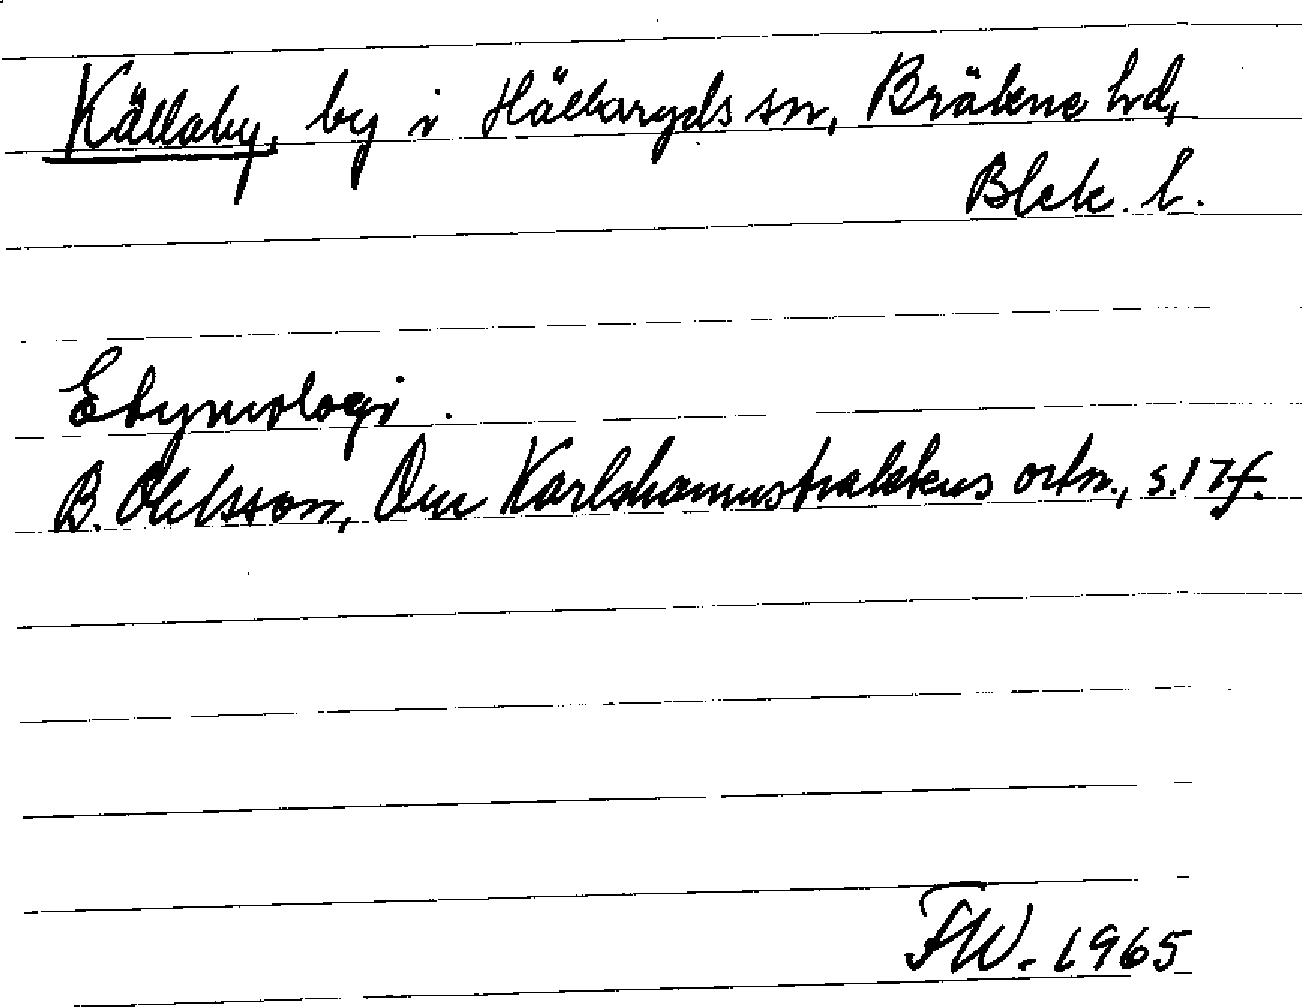 Källaby, by i Hällaryds sn, Bräkne hd,
Blek. l.
Etymologi.
B. Ohlsson, Om Karlshamnstraktens ortn., s. 17f.
FW. 1965